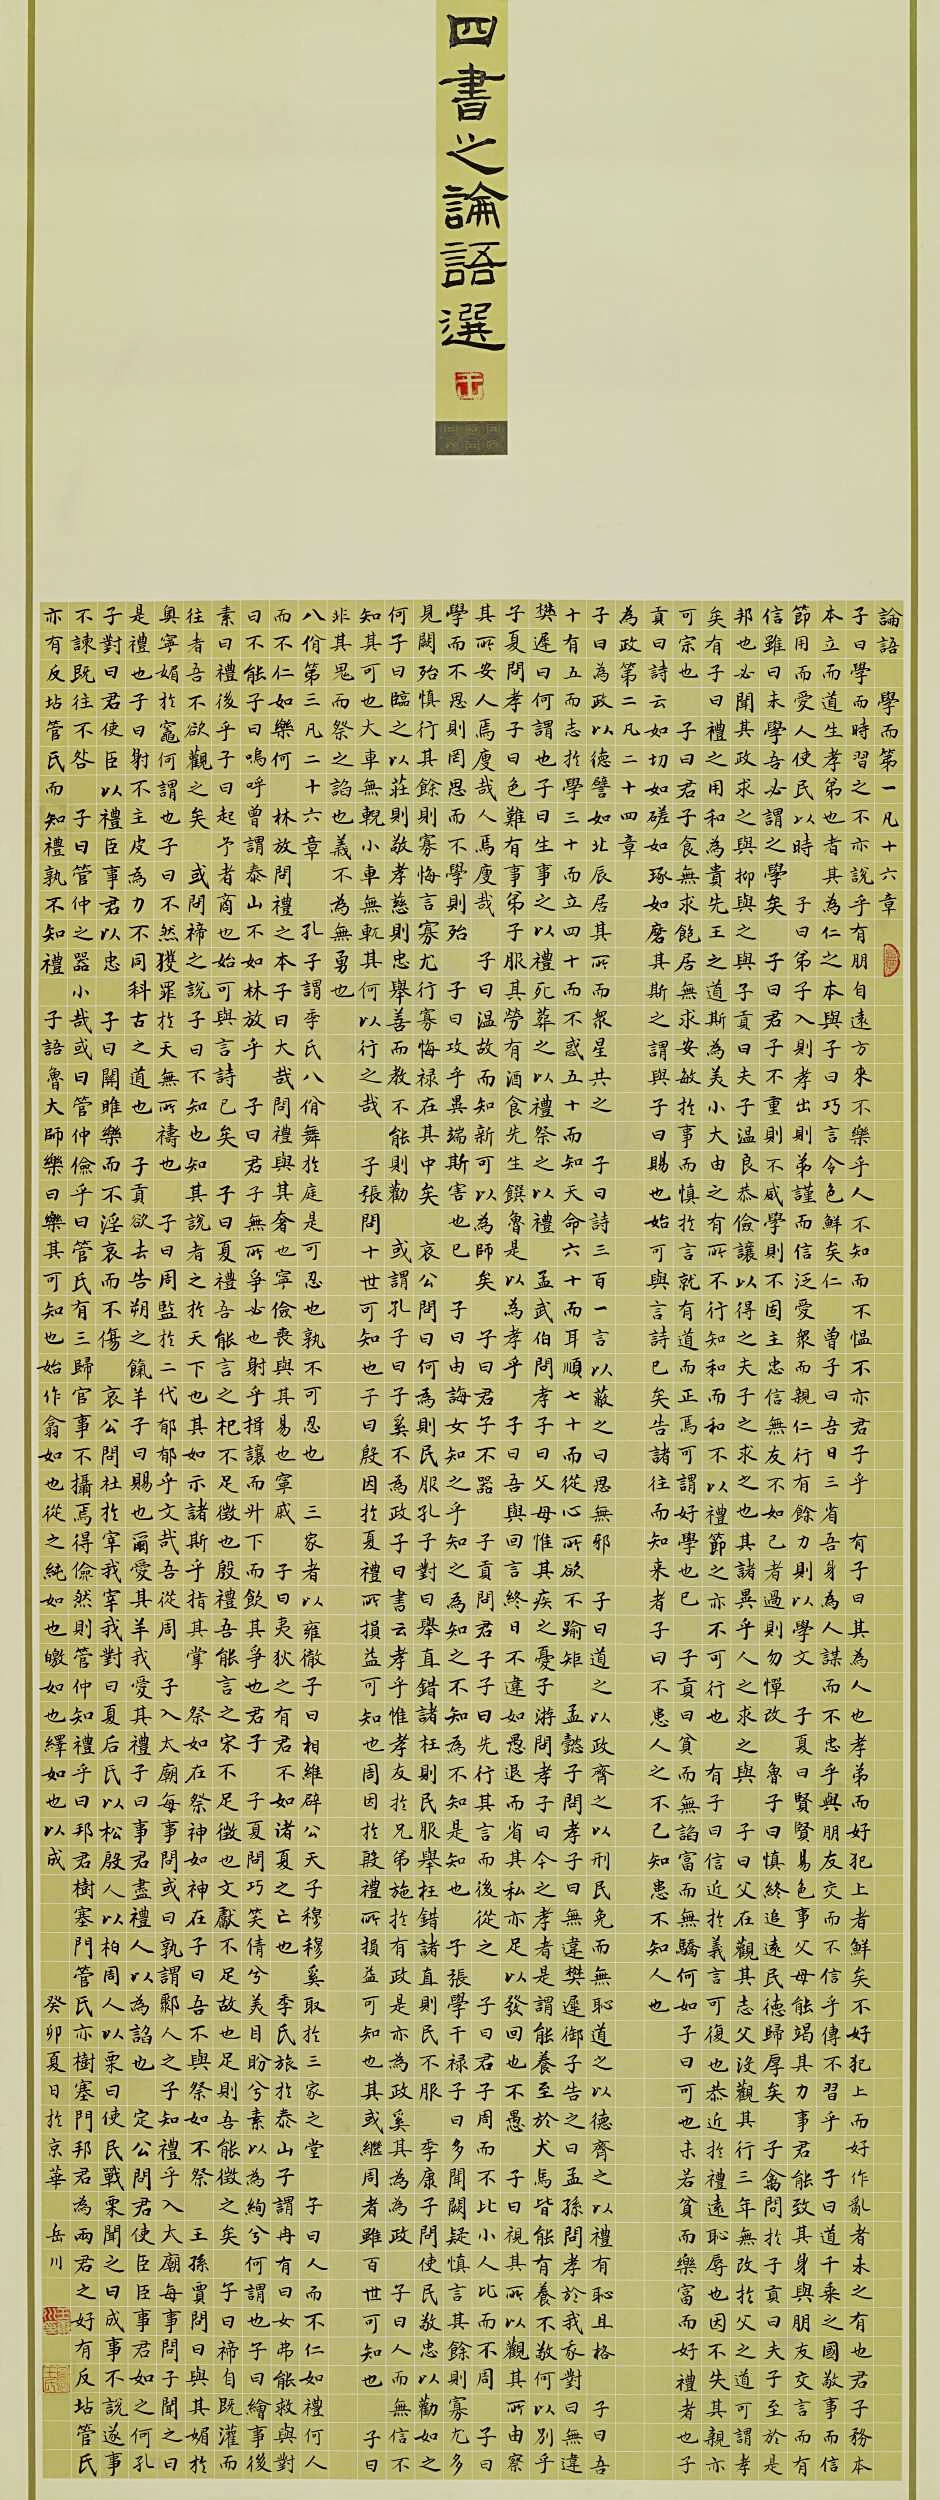 四書之論語選
論語 學而第一凡十六章
子曰學而時習之不亦說乎有朋自遠方來不樂乎人不知而不慍不亦君子乎 有子曰其為人也孝弟而好犯上者鮮矣不好犯上而好作亂者未之有也君子務本
本立而道生孝弟也者其為仁之本與子曰巧言令色鮮矣仁 曾子曰吾日三省吾身為人謀而不忠乎與朋友交而不信乎傳不習乎 子曰道千乘之國敬事而信
節用而愛人使民以時 子曰弟子入則孝出則弟謹而信泛愛眾而親仁行有餘力則以學文 子夏曰賢賢易色事父母能竭其力事君能致其身與朋友交言而有
信雖曰未學吾必謂之學矣 子曰君子不重則不威學則不固主忠信無友不如己者過則勿憚改 魯子曰慎終追遠民德歸厚矣 子禽問於子貢曰夫子至於是
邦也必聞其政求之與抑與之與子貢曰夫子溫良恭儉讓以得之夫子之求之也其諸異乎人之求之與 子曰父在觀其志父沒觀其行三年無改於父之道可謂孝
矣有子曰禮之用和為貴先王之道斯為美小大由之有所不行知和而和不以禮節之亦不可行也 有子曰信近於義言可復也恭近於禮遠恥辱也因不失其親亦
可宗也 子曰君子食無求飽居無求安敏於事而慎於言就有道而正焉可謂好學也已 子貢曰貧而無諂富而無驕何如子曰可也未若貧而樂富而好禮者也子
貢曰詩云如切如磋如琢如磨其斯之謂與子曰賜也始可與言詩已矣告諸往而知來者子曰不患人之不己知患不知人也
為政第二凡二十四章
子曰為政以德譬如北辰居其所而眾星共之 子曰詩三百一言以蔽之曰思無邪 子曰道之以政齊之以刑民免而無恥道之以德齊之以禮有恥且格 子曰吾
十有五而志於學三十而立四十而不惑五十而知天命六十而耳順七十而從心所欲不踰矩 孟懿子問孝子曰無違樊遲御子告之曰孟孫問孝於我我對曰無違
樊遲曰何謂也子曰生事之以禮死葬之以禮祭之以禮 孟武伯問孝子曰父母惟其疾之憂子游問孝子曰今之孝者是謂能養至於犬馬皆能有養不敬何以別乎
子夏問孝子曰色難有事弟子服其勞有酒食先生饌魯是以為孝乎 子曰吾與回言終日不違如愚退而省其私亦足以發回也不愚 子曰視其所以觀其所由察
其所安人焉廋哉人焉廋哉 子曰溫故而知新可以為師矣 子曰君子不器 子貢問君子子曰先行其言而後從之 子曰君子周而不比小人比而不周 子曰
學而不思則罔思而不學則殆 子曰攻乎異端斯害也已 子曰由誨女知之乎知之為知之不知為不知是知也 子張學干祿子曰多聞闕疑慎言其餘則寡尤多
見闕殆慎行其餘則寡悔言寡尤行寡悔祿在其中矣 哀公問曰何為則民服孔子對曰舉直錯諸枉則民服舉枉錯諸直則民不服 季康子問使民敬忠以勸如之
何子曰臨之以莊則敬孝慈則忠舉善而教不能則勸 或謂孔子曰子奚不為政子曰書云孝乎惟孝友於兄弟施於有政是亦為政奚其為為政 子曰人而無信不
知其可也大車無輗小車無軏其何以行之哉 子張問十世可知也子曰殷因於夏禮所損益可知也周因於殷禮所損益可知也其或繼周者雖百世可知也 子曰
非其鬼而祭之諂也義不為無勇也
八佾第三凡二十六章 孔子謂季氏八佾舞於庭是可忍也孰不可忍也 三家者以雍徹子曰相維辟公天子穆穆奚取於三家之堂 子曰人而不仁如禮何人
而不仁如樂何 林放問禮之本子曰大哉問禮與其奢也寧儉喪與其易也寧戚 子曰夷狄之有君不如諸夏之亡也 季氏旅於泰山子謂冉有曰女弗能救與對
曰不能子曰嗚呼曾謂泰山不如林放乎 子曰君子無所爭必也射乎揖讓而升下而飲其爭也君子 子夏問巧笑倩兮美目盼兮素以為絢兮何謂也子曰繪事後
素曰禮後乎子曰起予者商也始可與言詩已矣 子曰夏禮吾能言之杞不足徵也殷禮吾能言之宋不足徵也文獻不足故也足則吾能徵之矣 子曰禘自既灌而
往者吾不欲觀之矣 或問禘之說子曰不知也知其說者之於天下也其如示諸斯乎指其掌 祭如在祭神如神在子曰吾不與祭如不祭 王孫賈問曰與其媚於
奧寧媚於竈何謂也子曰不然獲罪於天無所禱也 子曰周監於二代郁郁乎文哉吾從周 子入太廟每事問或曰孰謂鄹人之子知禮乎入太廟每事問子聞之曰
是禮也子曰射不主皮為力不同科古之道也 子貢欲去告朔之餼羊子曰賜也爾愛其羊我愛其禮子曰事君盡禮人以為諂也 定公問君使臣臣事君如之何孔
子對曰君使臣以禮臣事君以忠 子曰關雎樂而不淫哀而不傷 哀公問社於宰我宰我對曰夏后氏以松殷人以柏周人以栗曰使民戰栗聞之曰成事不說遂事
不諫既往不咎 子曰管仲之器小哉或曰管仲儉乎曰管氏有三歸官事不攝焉得儉然則管仲知禮乎曰邦君樹塞門管氏亦樹塞門邦君為兩君之好有反坫管氏
亦有反坫管氏而知禮孰不知禮 子語魯大師樂曰樂其可知也始作翕如也從之純如也皦如也繹如也以成 癸卯夏日於京華 岳川